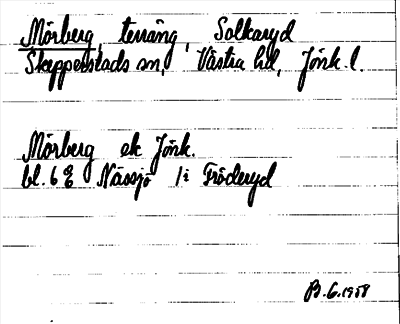 Mörberg, terräng, Solkaryd
Skepperstads sn, Västra hd, Jönk. l.
Mörberg ek Jönk.
bl. 6 E Nässjö 1i Fröderyd
B. G. 1958